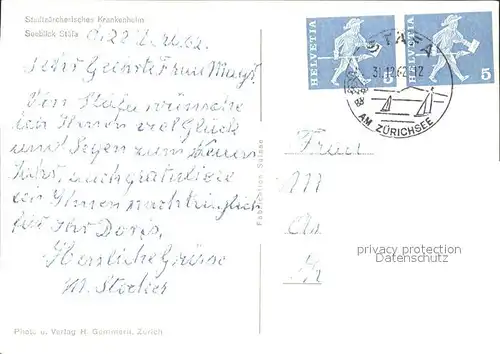 Stadtzürcherisches Krankenheim
Seeblick-Stäfa
Sehr Geehrte Frau
Von Stäfa wünsche
ich Ihnen viel Glück
und Segen zum Neuen
Jahr, auch gratuliere
ich Ihnen nachträglich
für Ihr Doris.
Herzliche Grüsse
M. Stocker
Photo u. Verlag H. Gemmerli, Zürich
Fabrication Suisse
HELVETIA 5
HELVETIA 5
STÄFA
31.12.62.12
AM ZÜRICHSEE
Frau
M
privacy protection
Datenschutz